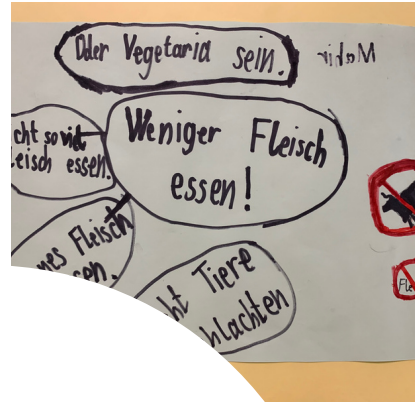 Oder Vegetaria sein.
Mahir
cht soviel
leisch essen.
Weniger Fleisch
essen!
nes Fleisch
sen.
ht Tiere
hlachten